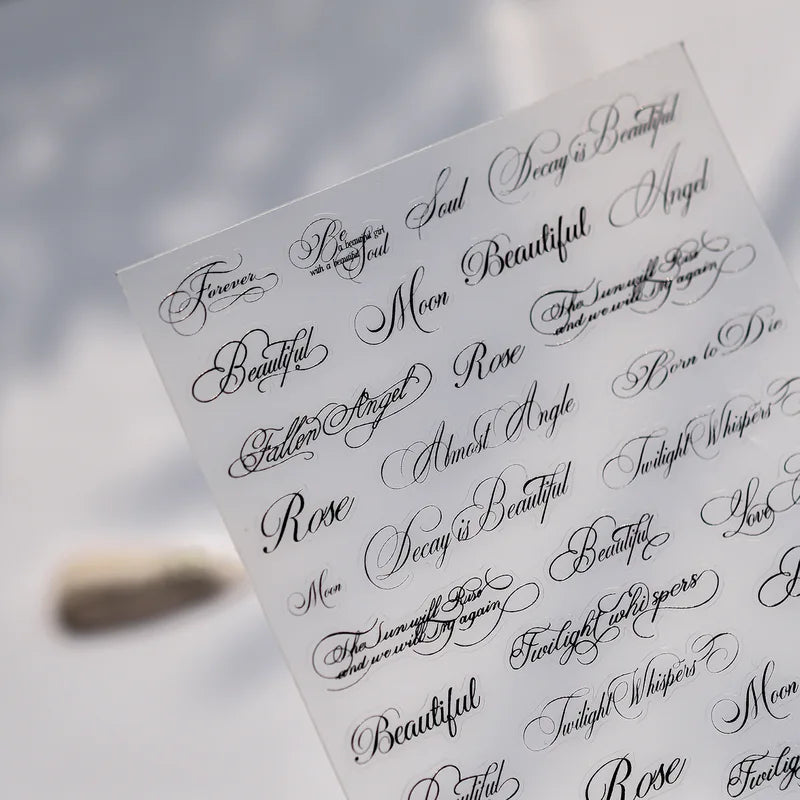 Forever
Be
a beautiful girl
with a beautiful
Soul
Soul
Decay is Beautiful
Beautiful
Moon
Beautiful
Angel
Fallen Angel
Rose
The Sun will Rise
and we will Try again
Rose
Almost Angle
Born to Die
Moon
Decay is Beautiful
Twilight Whispers
The Sun will Rise
and we will Try again
Beautiful
Love
Beautiful
Twilight whispers
Twilight Whispers
Moon
Rose